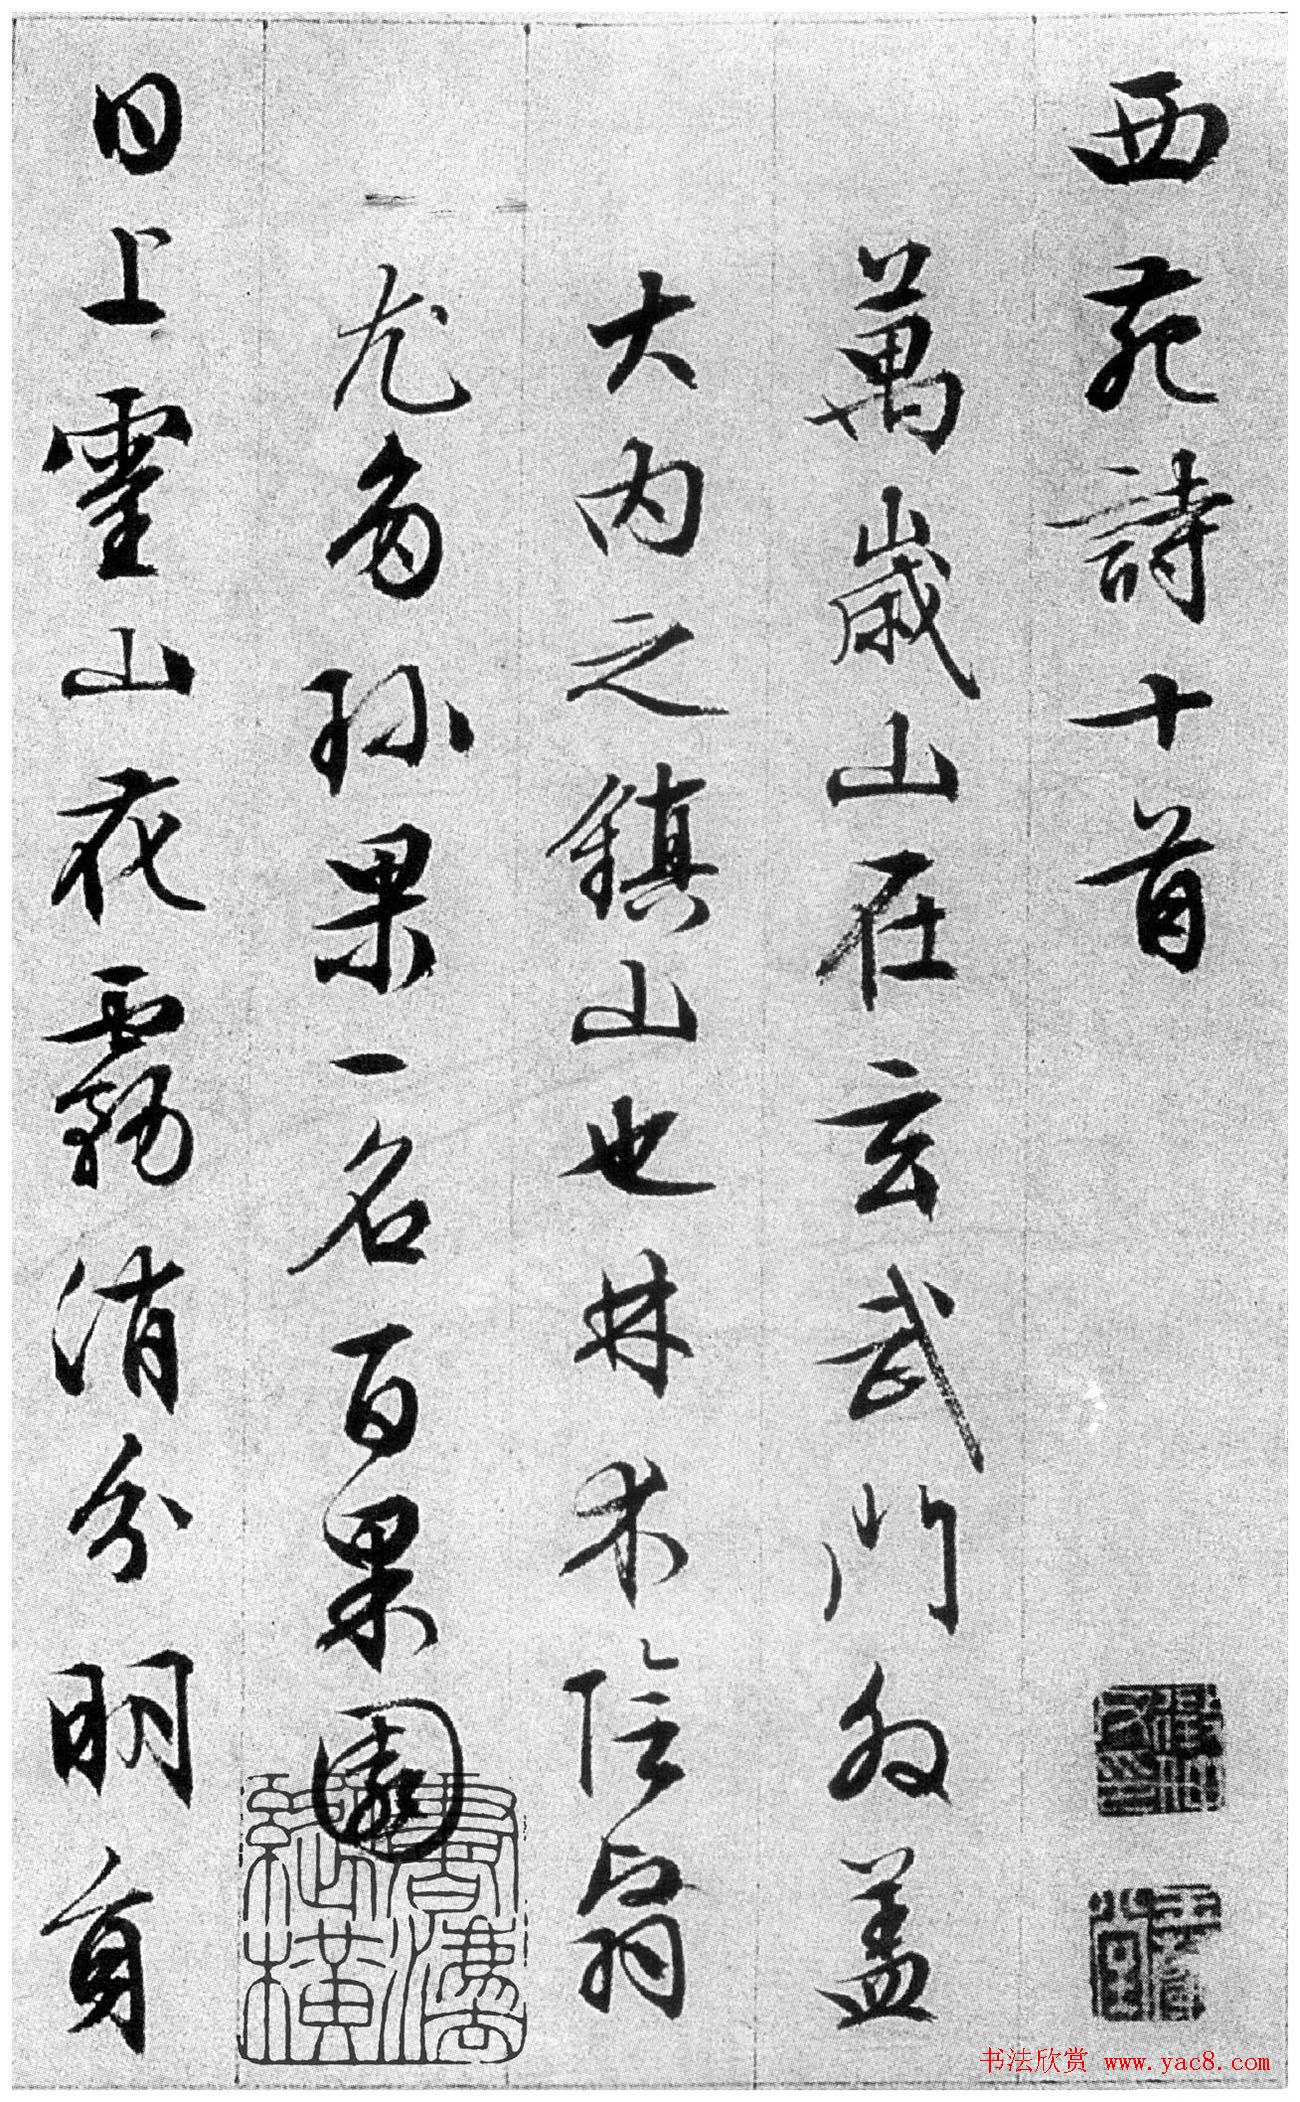 西苑詩十首
萬歲山在玄武門外蓋
大內之鎮山也林木陰翳
尤多珍果一名百果園
日上靈山花霧消分明身
書法欣赏 www.yac8.com